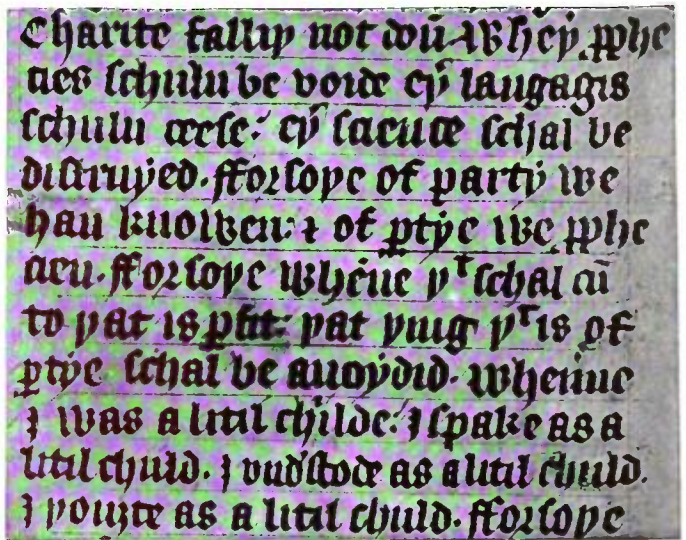 Charite falliþ not doū whеþ̄ ꝓphe
cies schuln be voide eþ̄ langagis
schuln ceese: eþ̄ science schal be
distruyed. fforsoþe of party we
han knowen: ⁊ of ꝑtye we ꝓphe
cien. fforsoþe whēne þͭ schal cū
to þat is ꝑfit: þat þing þͭ is of
ꝑtye schal be auoydid. whenne
I was a litil childe: I spake as a
litil chijld. I vnd'stode as a litil chijld.
I þouȝte as a litil chijld. fforsoþe